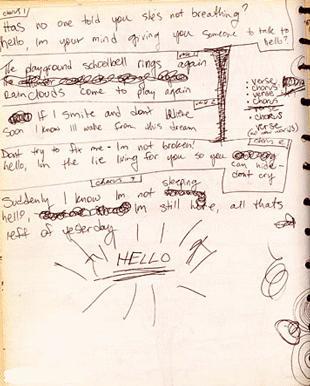 chorus 1/
Has no one told you shes not breathing?
hello Im your mind giving you someone to talk to
hello?
The playground schoolbell rings again
rainclouds come to play again
If I smile and dont believe
Soon I know Ill wake from this dream
• verse
• chorus
• verse
• chorus
• chorus
verse
Dont try to fix me - Im not broken!
hello, Im the lie living for you so you
can hide -
dont cry
Suddenly I know Im not sleeping
hello, Im still here, all thats
left of yesterday
HELLO